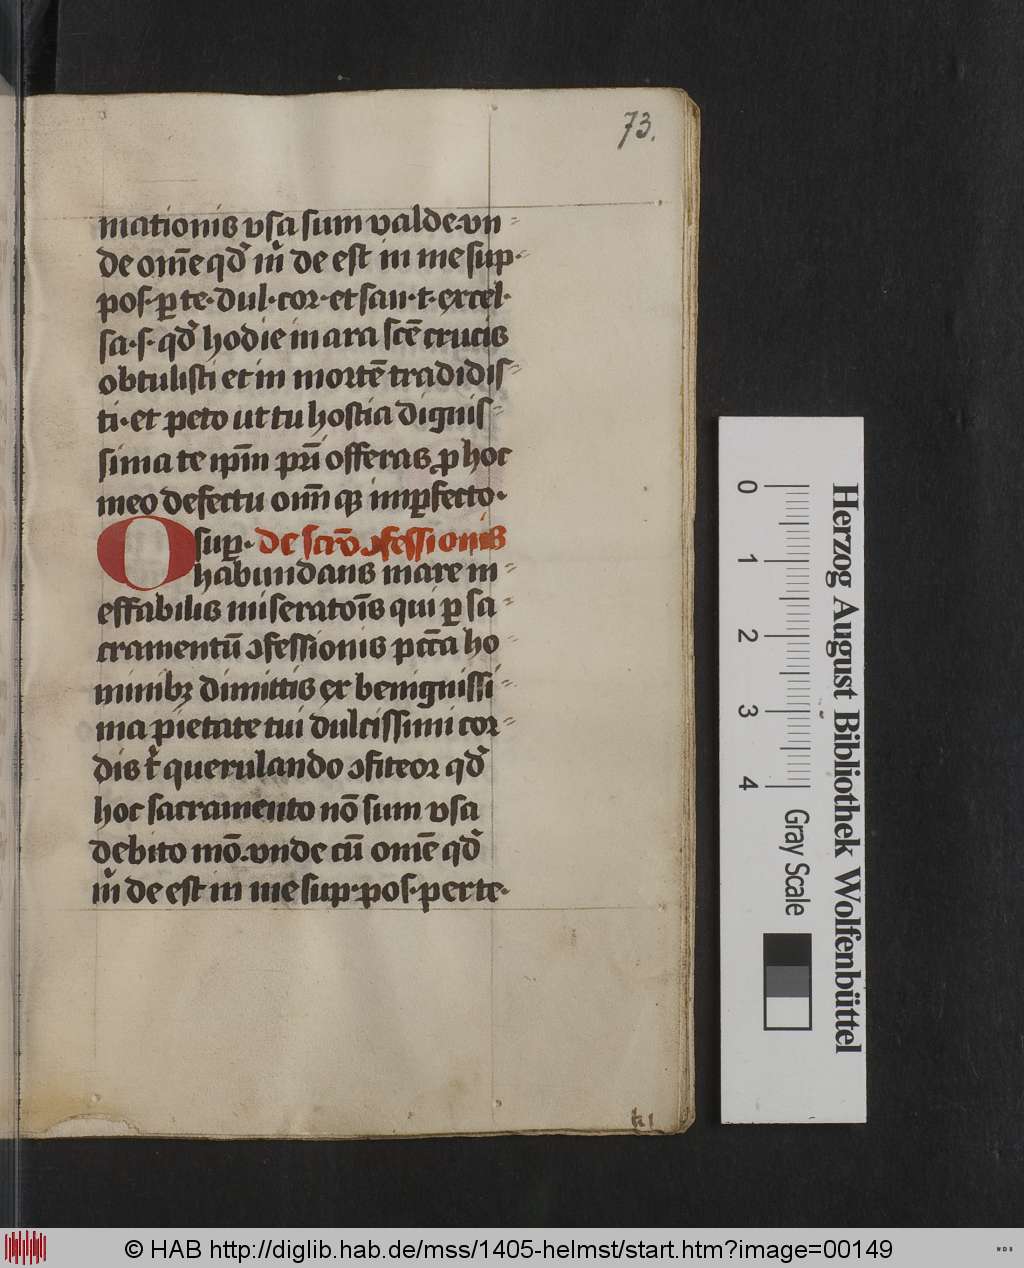 73.
mationis vsa sum valde. vn⸗
de om̅e qd̓ m̓ de est in me sup.⸗
pos. ꝑ te. dul. cor. et san. t. excel.
sa. s. qd̓ hodie in ara sce̅ crucis
obtulisti et in morte̅ tradidis⸗
ti. et peto ut tu hostia dignis⸗
sima te ip̅m pr̅i offeras ꝓ hoc
meo defectu om̅ qꝫ imꝑfecto.
O sup. de scr̅o ↄfessionis
habundans mare in⸗
effabilis miserato̅is qui ꝑ sa⸗
cramentu̅ ↄfessionis pcc̅a ho⸗
minibꝫ dimittis ex benignissi⸗
ma pietate tui dulcissimi cor⸗
dis t̓ querulando ↄfiteor qd̓
hoc sacramento no̅ sum vsa
debito mo̅. vnde cu̅ ome̅ qd̓
m̓ de est in me sup. pos. per te.
k 1
Herzog August Bibliothek Wolfenbüttel
0 1 2 3 4 Gray Scale
© HAB http://diglib.hab.de/mss/1405-helmst/start.htm?image=00149